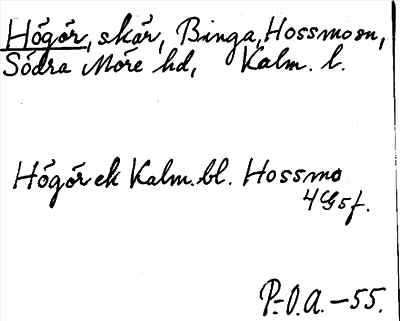 Högör, skär, Binga, Hossmo sn,
Södra Möre hd, Kalm. l.
Högör ek Kalm. bl. Hossmo
4 G 5 f.
P.-O.A. -55.